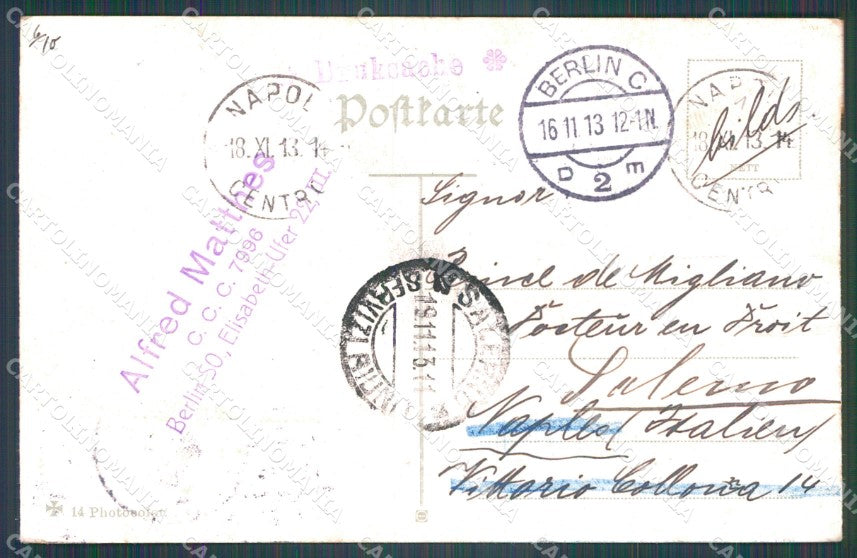 4/10
Druksache
Postkarte
NAPOLI
18.XI.13.14
CENTRO
BERLIN C.
16 11 13 12-1N.
D 2 E
NAP
18.XI.13.14
CENTR
bilds.
NETT
Alfred Matthes
C. C. C. 7996
Berlin SO, Elisabeth-Ufer 22, III.
SERVIZI
19.11.13.11
Signor
Princ de Migliano
Docteur en Droit
Salerno
Naples (Italien)
Vittorio Collona 14
14 Photochr
CARTOLINOMANIA